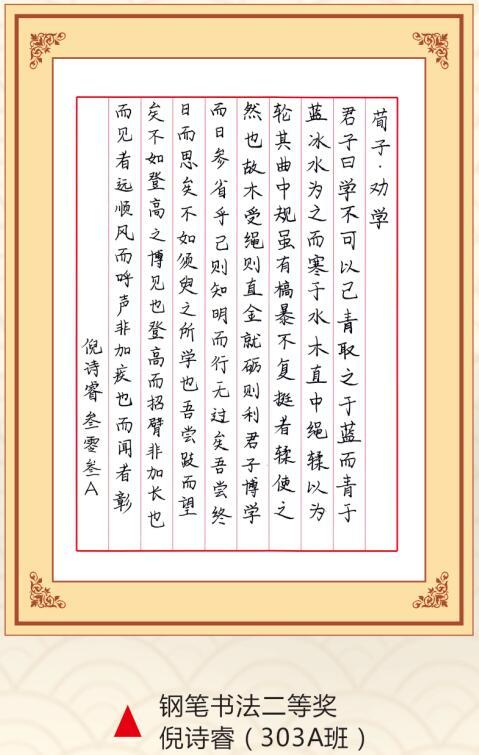 荀子·劝学
君子曰学不可以已青取之于蓝而青于
蓝冰水为之而寒于水木直中绳𫐓以为
轮其曲中规虽有槁暴不复挺者𫐓使之
然也故木受绳则直金就砺则利君子博学
而日参省乎己则知明而行无过矣吾尝终
日而思矣不如须臾之所学也吾尝跂而望
矣不如登高之博见也登高而招臂非加长也
而见者远顺风而呼声非加疾也而闻者彰
倪诗睿叁零叁A
钢笔书法二等奖
倪诗睿（303A班）